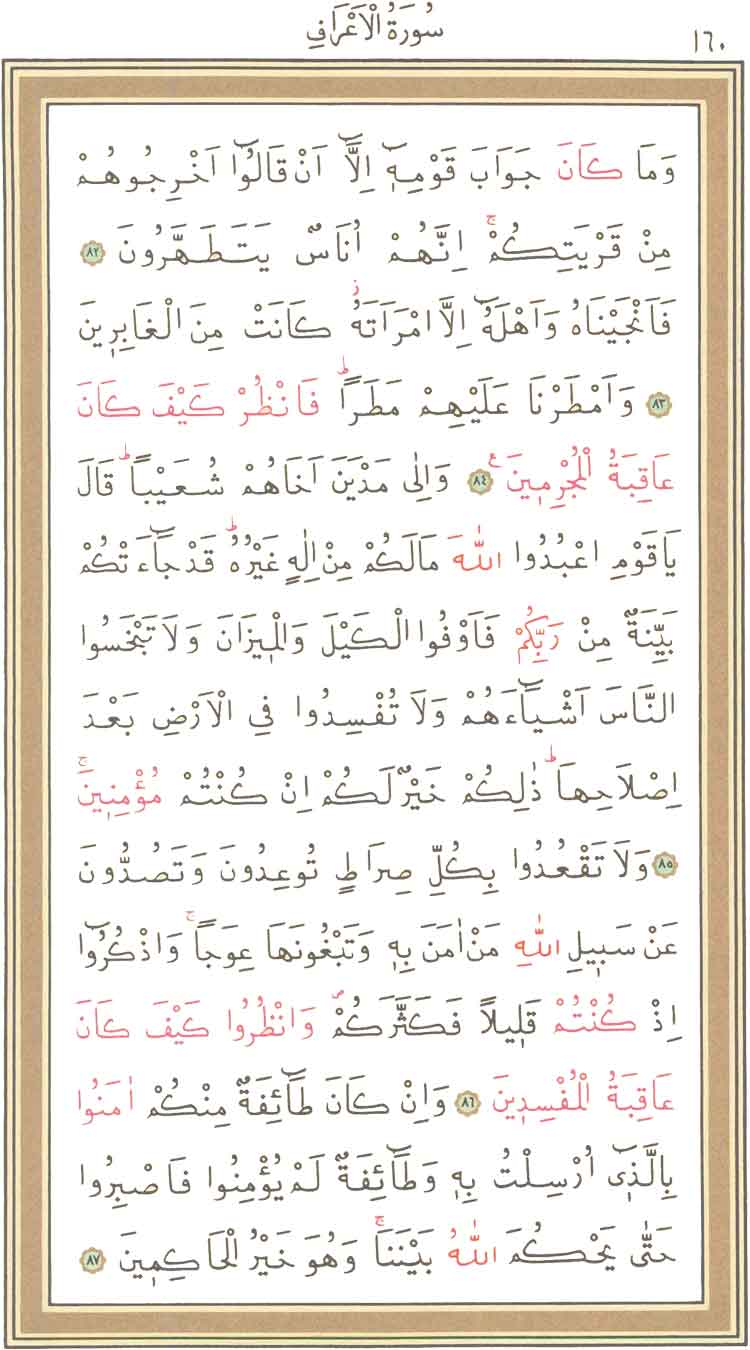 سُورَةُ الْاَعْرَافِ
١٦٠
وَمَا كَانَ جَوَابَ قَوْمِه۪ٓ اِلَّٓا اَنْ قَالُٓوا اَخْرِجُوهُمْ
مِنْ قَرْيَتِكُمْۚ اِنَّهُمْ اُنَاسٌ يَتَطَهَّرُونَ ٨٢
فَاَنْجَيْنَاهُ وَاَهْلَهُٓ اِلَّا امْرَاَتَهُۘ كَانَتْ مِنَ الْغَابِر۪ينَ
٨٣ وَاَمْطَرْنَا عَلَيْهِمْ مَطَرًاۜ فَانْظُرْ كَيْفَ كَانَ
عَاقِبَةُ الْمُجْرِم۪ينَ۟ ٨٤ وَاِلٰى مَدْيَنَ اَخَاهُمْ شُعَيْبًاۜ قَالَ
يَاقَوْمِ اعْبُدُوا اللّٰهَ مَالَكُمْ مِنْ اِلٰهٍ غَيْرُهُۜ قَدْ جَٓاءَتْكُمْ
بَيِّنَةٌ مِنْ رَبِّكُمْ فَاَوْفُوا الْكَيْلَ وَالْم۪يزَانَ وَلَا تَبْخَسُوا
النَّاسَ اَشْيَٓاءَهُمْ وَلَا تُفْسِدُوا فِي الْاَرْضِ بَعْدَ
اِصْلَاحِهَاۜ ذٰلِكُمْ خَيْرٌ لَكُمْ اِنْ كُنْتُمْ مُؤْمِن۪ينَۚ
٨٥ وَلَا تَقْعُدُوا بِكُلِّ صِرَاطٍ تُوعِدُونَ وَتَصُدُّونَ
عَنْ سَب۪يلِ اللّٰهِ مَنْ اٰمَنَ بِه۪ وَتَبْغُونَهَا عِوَجًاۚ وَاذْكُرُٓوا
اِذْ كُنْتُمْ قَل۪يلًا فَكَثَّرَكُمْۖ وَانْظُرُوا كَيْفَ كَانَ
عَاقِبَةُ الْمُفْسِد۪ينَ ٨٦ وَاِنْ كَانَ طَٓائِفَةٌ مِنْكُمْ اٰمَنُوا
بِالَّذ۪ٓي اُرْسِلْتُ بِه۪ وَطَٓائِفَةٌ لَمْ يُؤْمِنُوا فَاصْبِرُوا
حَتّٰى يَحْكُمَ اللّٰهُ بَيْنَنَاۚ وَهُوَ خَيْرُ الْحَاكِم۪ينَ ٨٧